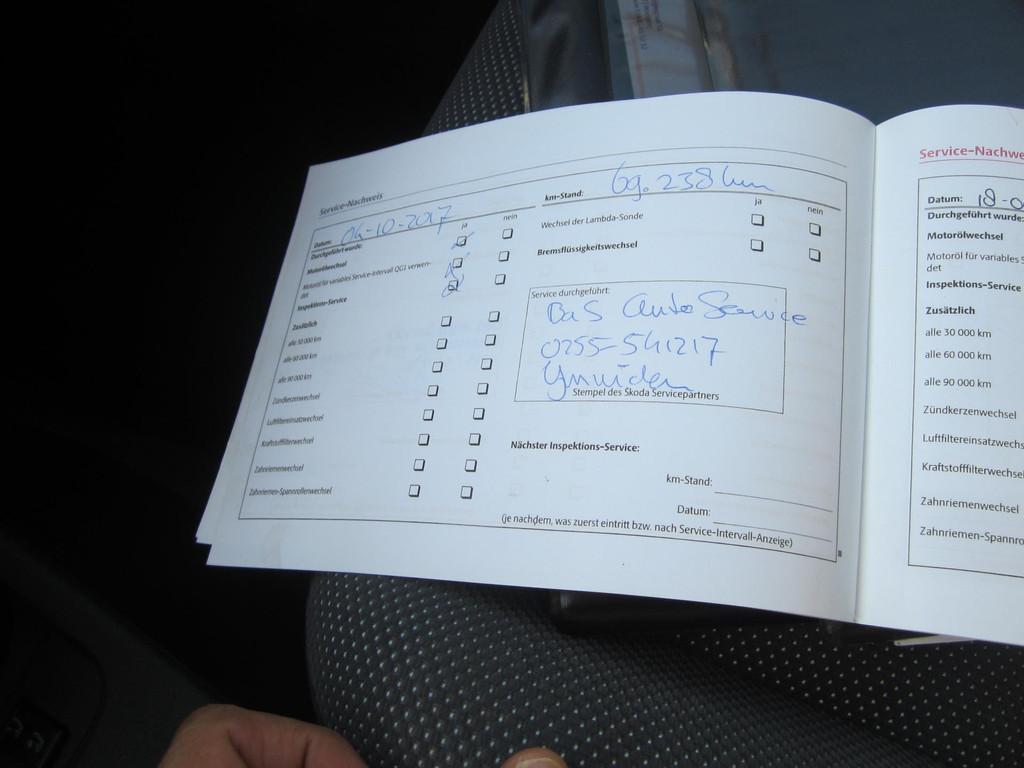 Service-Nachweis
Datum: 04-10-2017
ja nein
Durchgeführt wurde:
Motorölwechsel
Motoröl für variables Service-Intervall QG1 verwen-
det
Inspektions-Service
Zusätzlich
alle 30 000 km
alle 60 000 km
alle 90 000 km
Zündkerzenwechsel
Luftfiltereinsatzwechsel
Kraftstofffilterwechsel
Zahnriemenwechsel
Zahnriemen-Spannrollenwechsel
km-Stand: 69.238 km
ja nein
Wechsel der Lambda-Sonde
Bremsflüssigkeitswechsel
Service durchgeführt:
BaS Auto Service
0255-541217
Ymuiden
Stempel des Skoda Servicepartners
Nächster Inspektions-Service:
km-Stand:
Datum:
(je nachdem, was zuerst eintritt bzw. nach Service-Intervall-Anzeige)
Service-Nachwe
Datum: 18-0
Durchgeführt wurde:
Motorölwechsel
Motoröl für variables S
det
Inspektions-Service
Zusätzlich
alle 30 000 km
alle 60 000 km
alle 90 000 km
Zündkerzenwechsel
Luftfiltereinsatzwechs
Kraftstofffilterwechsel
Zahnriemenwechsel
Zahnriemen-Spannro